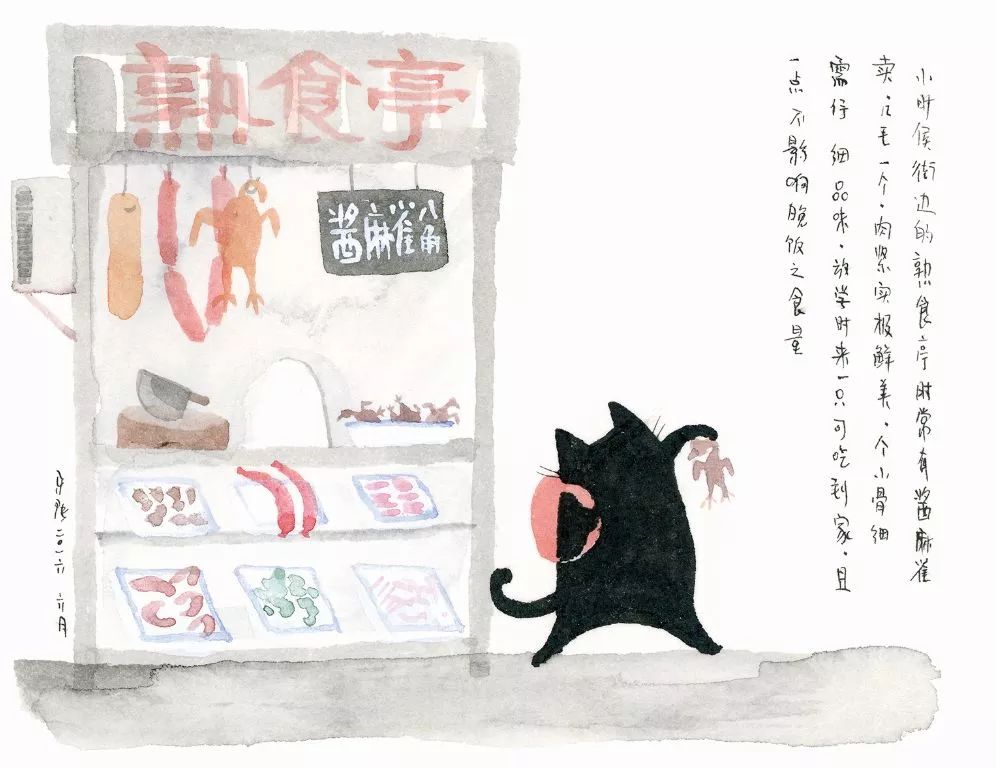 熟食亭
醬麻雀
八角
小时候街边的熟食亭时常有酱麻雀
卖 毛一个，肉紧实极鲜美，个小骨细
需仔细品味，放学时来一只可吃到家，且
一点不影响晚饭之食量
二〇一六 六月